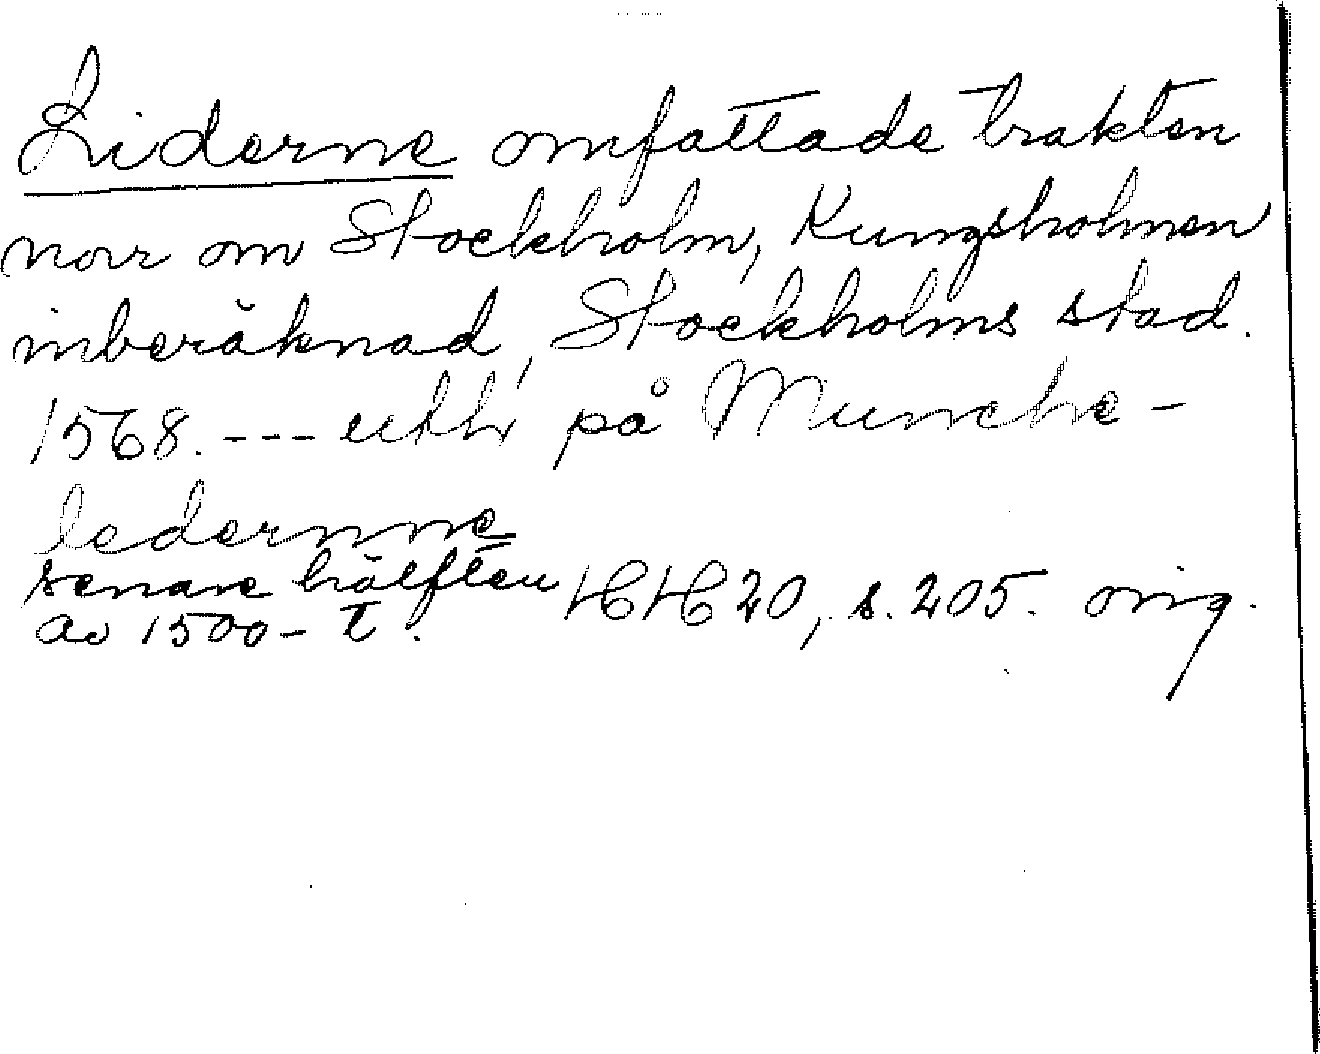 Liderne omfattade trakten
norr om Stockholm, Kungsholmen
inberäknad, Stockholms stad.
1568. --- på Munche-
ledernne
senare hälften
av 1500-t. HH 20, s. 205. orig.